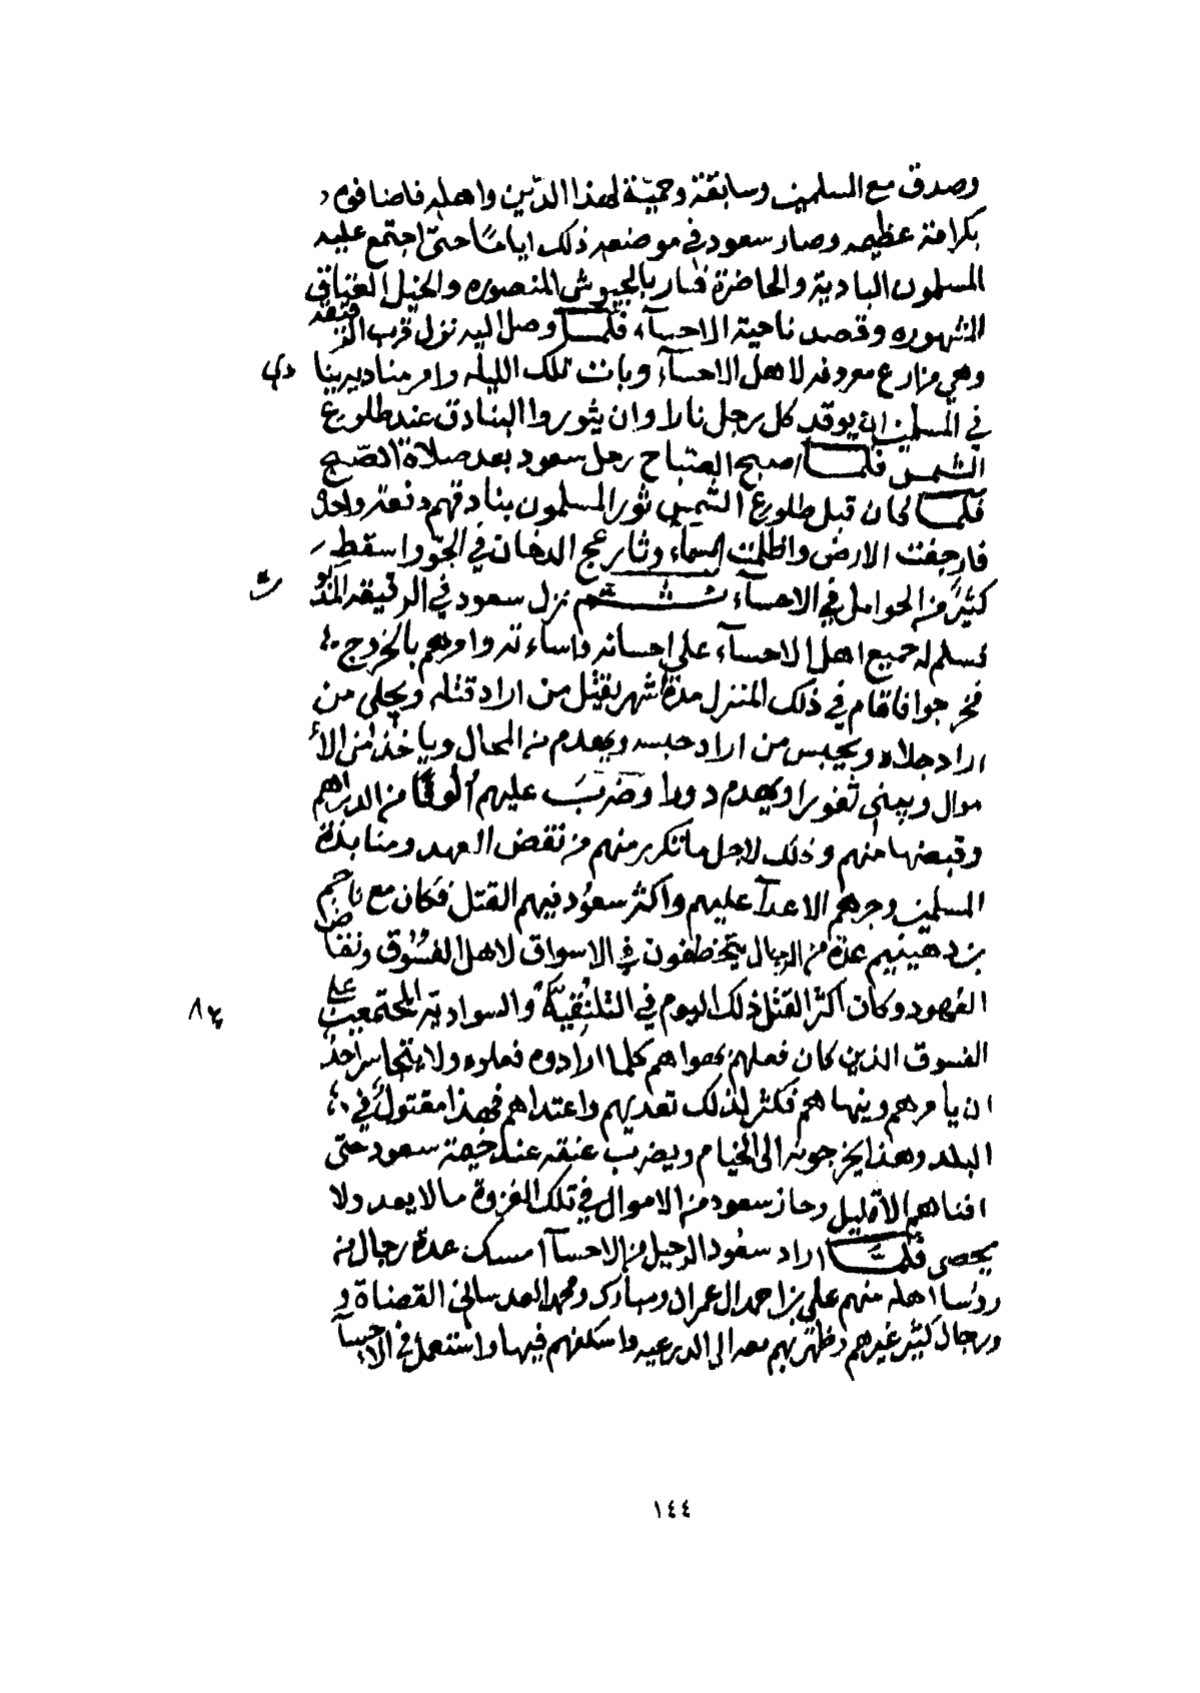 وصدق مع المسلمين وسابقة وحميّة لهذا الدّين واهله فاضافوه
بكرامة عظيمه وصار سعود في موضعه ذلك اياماً حتى اجتمع عليه
المسلمون البادية والحاضرة فسار بالجيوش المنصوره والخيل العتاق
المشهوره وقصد ناحية الاحسآء فلمـــا وصل اليه نزل قرب الرقيقه
وهي مزارع معروفه لاهل الاحسآء وبات تلك الليله وامر مناديه ينادي
في المسلمين ان يوقد كل رجل نارا وان يثوروا البنادق عند طلوع
الشمس فلمـــا اصبح الصباح رحل سعود بعد صلاة الصبح
فلمـــا كان قبل طلوع الشمس ثور المسلمون بنادقهم دفعة واحدة
فارجفت الارض واظلمت السمآء وثار عج الدخان في الجو واسقط
كثير من الحوامل في الاحسآء ثـــم نزل سعود في الرقيقه المذكورة
فسلم له جميع اهل الاحسآء على احسانه واساءته وامرهم بالخروج
فخرجوا فاقام في ذلك المنزل مدة اشهر يقتل من اراد قتله ويجلي من
اراد جلاه ويحبس من اراد حبسه ويهدم من المحال وياخذ من الأ
موال ويبني ثغورا ويهدم دورا وضرب عليهم ألوفا من الدراهم
وقبضها منهم وذلك لاجل ما تكرر منهم من نقض العهد ومنابذة
المسلمين وجرهم الاعدآ عليهم واكثر سعود فيهم القتل فكان مع ناجم
بن دهينيم عدة من الرجال يتخطفون في الاسواق لاهل الفسوق ونقاض
العهود وكان اكثر القتل ذلك اليوم في والسوادية المجتمعين على
٨٣
الفسوق الذين كان فعلهم بهواهم كلما ارادوه فعلوه ولا يتجاسر احد
ان يامرهم وينهاهم فكثر لذلك تعديهم واعتداهم فهذا مقتول في
البلد وهذا يخرجونه الى الخيام ويضرب عنقه عند خيمة سعود حتى
افناهم الا قليل وحاز سعود من الاموال في تلك الغزوة ما لا يعد ولا
يحصى فلمـــا اراد سعود الرحيل من الاحسآ امسك عدة رجال من
رؤسا اهله منهم علي بن احمد ال عمران ومبارك ومحمد العدساني القضاة و
ورجال كثير غيرهم وظهر بهم معه الى الدرعيه واسكنهم فيها واستعمل في الاحسآ
١٤٤